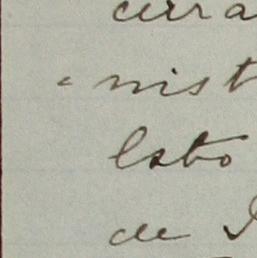 cerra
- nist
Esto
de